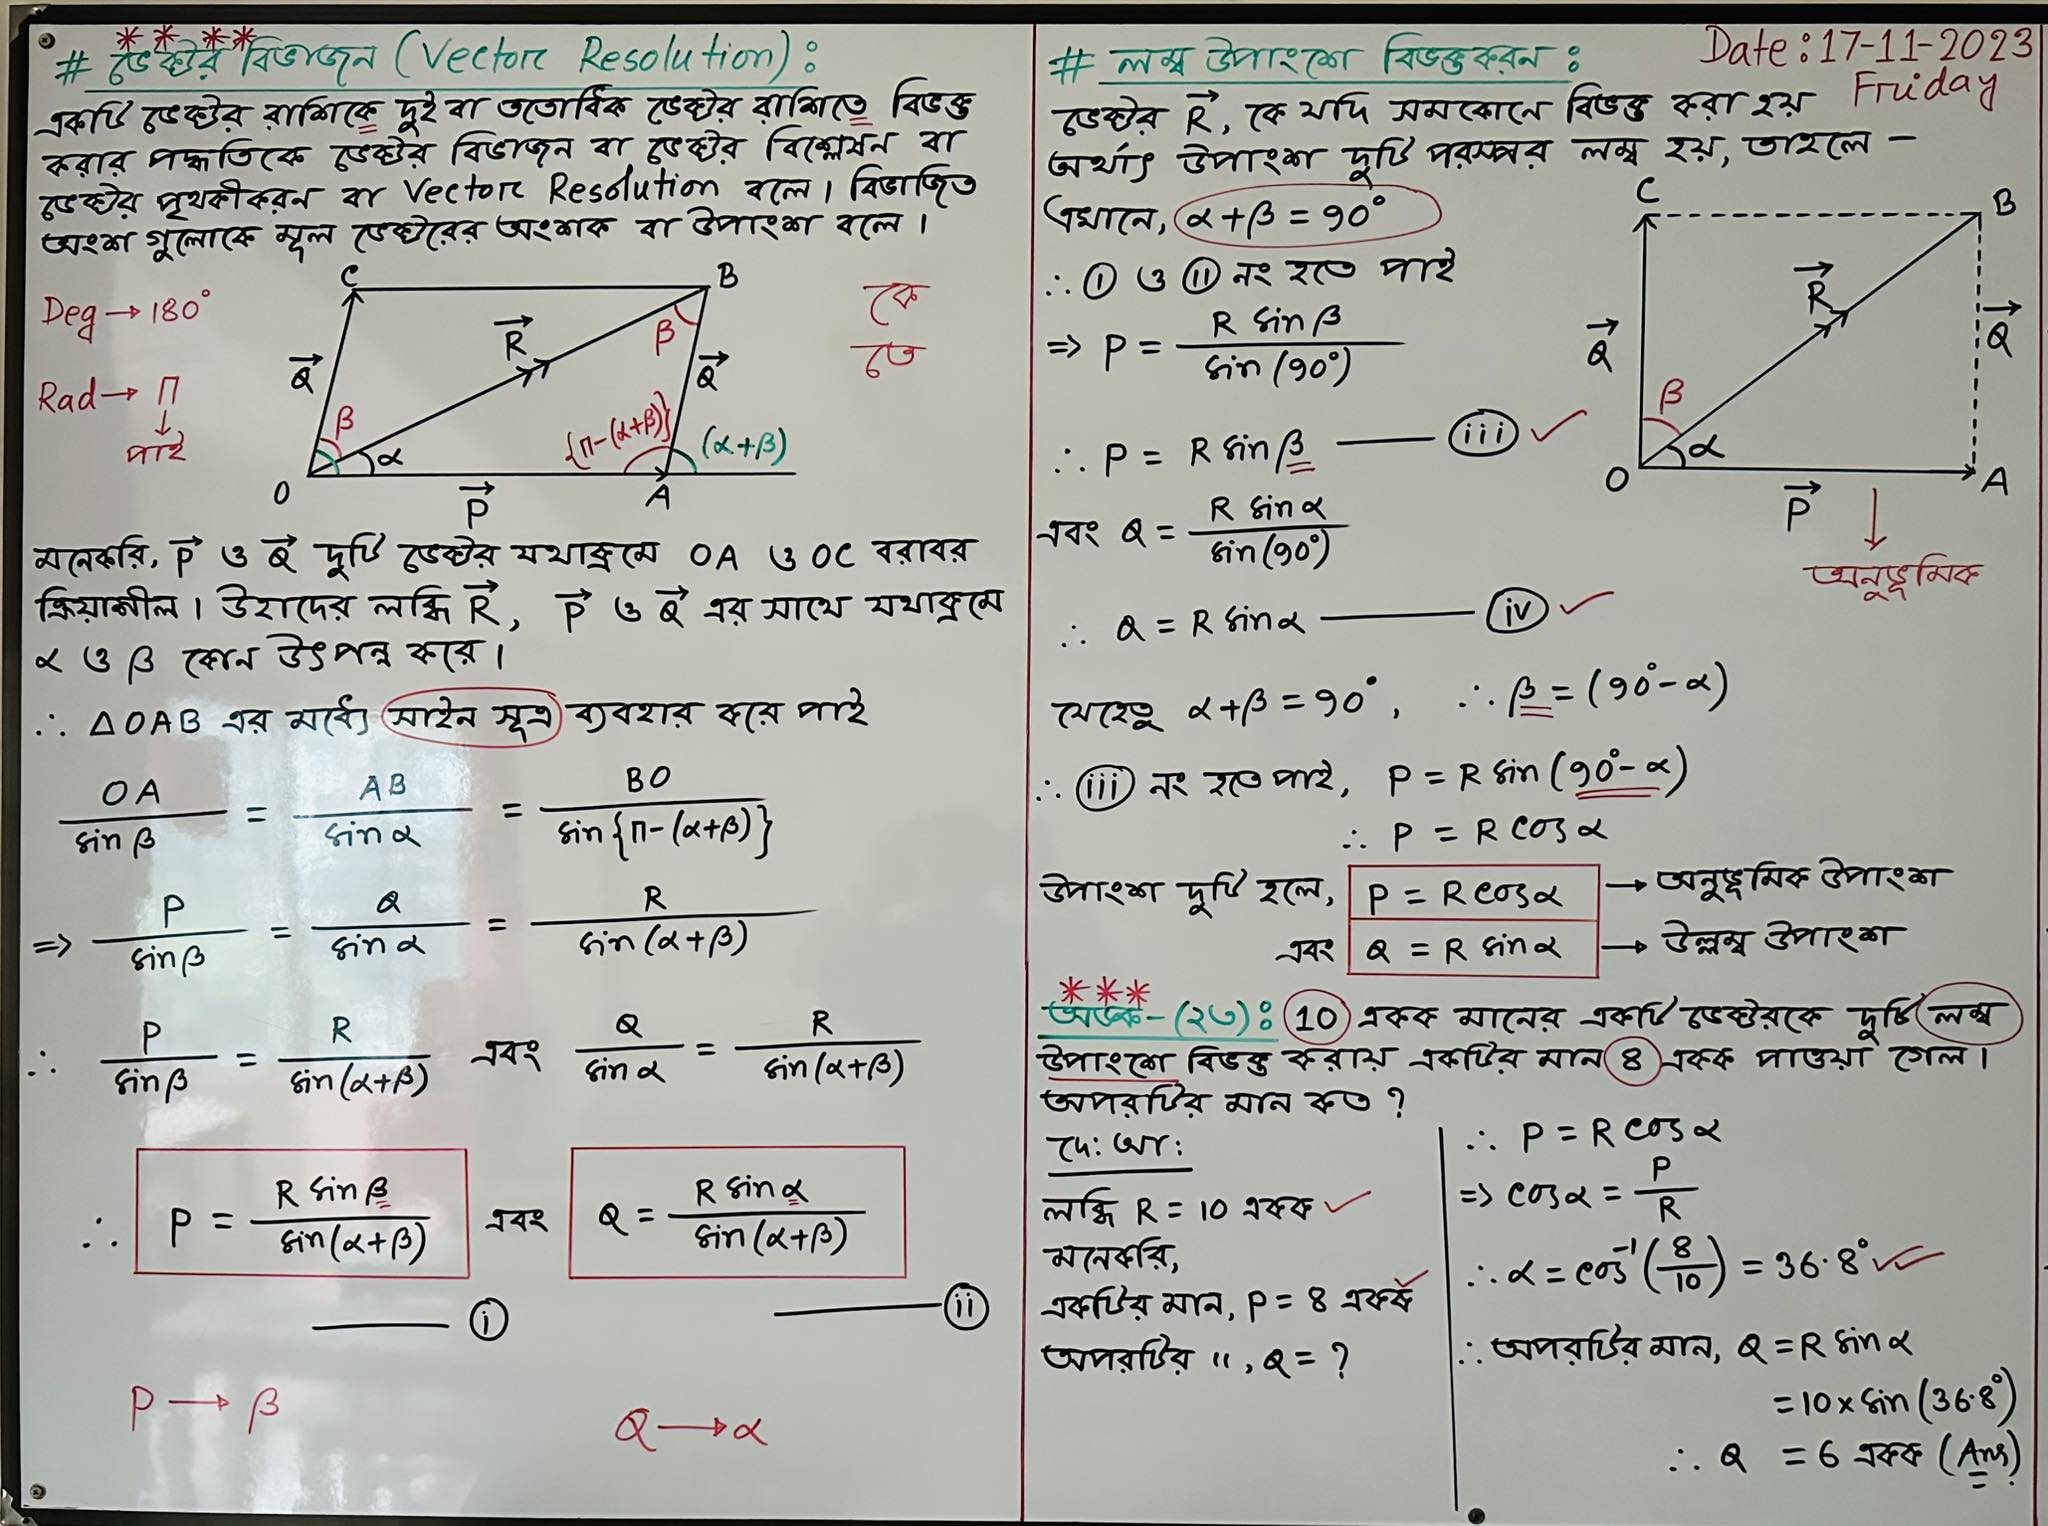 # ভেক্টর বিভাজন (Vector Resolution) :
একটি ভেক্টর রাশিকে দুই বা ততোধিক ভেক্টর রাশিতে বিভক্ত
করার পদ্ধতিকে ভেক্টর বিভাজন বা ভেক্টর বিশ্লেষন বা
ভেক্টর পৃথকীকরন বা Vector Resolution বলে। বিভাজিত
অংশ গুলোকে মূল ভেক্টরের অংশক বা উপাংশ বলে।
Deg → 180°
Rad → π
↓
পাই
C
B
কে
তে
Q⃗
R⃗
β
Q⃗
β
α
{π-(α+β)}
(α+β)
O
P⃗
A
মনেকরি, P⃗ ও Q⃗ দুটি ভেক্টর যথাক্রমে OA ও OC বরাবর
ক্রিয়াশীল। উহাদের লব্ধি R⃗, P⃗ ও Q⃗ এর সাথে যথাক্রমে
α ও β কোন উৎপন্ন করে।
∴ ΔOAB এর মধ্যে সাইন সূত্র ব্যবহার করে পাই
OA/sin β = AB/sin α = BO/sin{π-(α+β)}
=> P/sin β = Q/sin α = R/sin(α+β)
∴ P/sin β = R/sin(α+β) এবং Q/sin α = R/sin(α+β)
∴ P = R sin β/sin(α+β) এবং Q = R sin α/sin(α+β)
——— (i)
——— (ii)
P → β
Q → α
# লম্ব উপাংশে বিভক্তকরন :
Date : 17-11-2023
Friday
ভেক্টর R⃗, কে যদি সমকোনে বিভক্ত করা হয়
অর্থাৎ উপাংশ দুটি পরস্পর লম্ব হয়, তাহলে –
এখানে, α+β = 90°
∴ (i) ও (ii) নং হতে পাই
=> P = R sin β/sin(90°)
∴ P = R sin β ——— (iii)
এবং Q = R sin α/sin(90°)
∴ Q = R sin α ——— (iv)
C
B
R⃗
Q⃗
Q⃗
β
α
O
P⃗
A
↓
অনুভূমিক
যেহেতু α+β = 90°, ∴ β = (90°-α)
∴ (iii) নং হতে পাই, P = R sin (90°-α)
∴ P = R cos α
উপাংশ দুটি হলে, P = R cos α → অনুভূমিক উপাংশ
এবং Q = R sin α → উল্লম্ব উপাংশ
অঙ্ক-(২৩) : 10 একক মানের একটি ভেক্টরকে দুটি লম্ব
উপাংশে বিভক্ত করায় একটির মান 8 একক পাওয়া গেল।
অপরটির মান কত ?
দে: আ:
লব্ধি R = 10 একক
মনেকরি,
একটির মান, P = 8 একক
অপরটির ", Q = ?
∴ P = R cos α
=> cos α = P/R
∴ α = cos⁻¹(8/10) = 36.8°
∴ অপরটির মান, Q = R sin α
= 10 x sin (36.8°)
∴ Q = 6 একক (Ans)